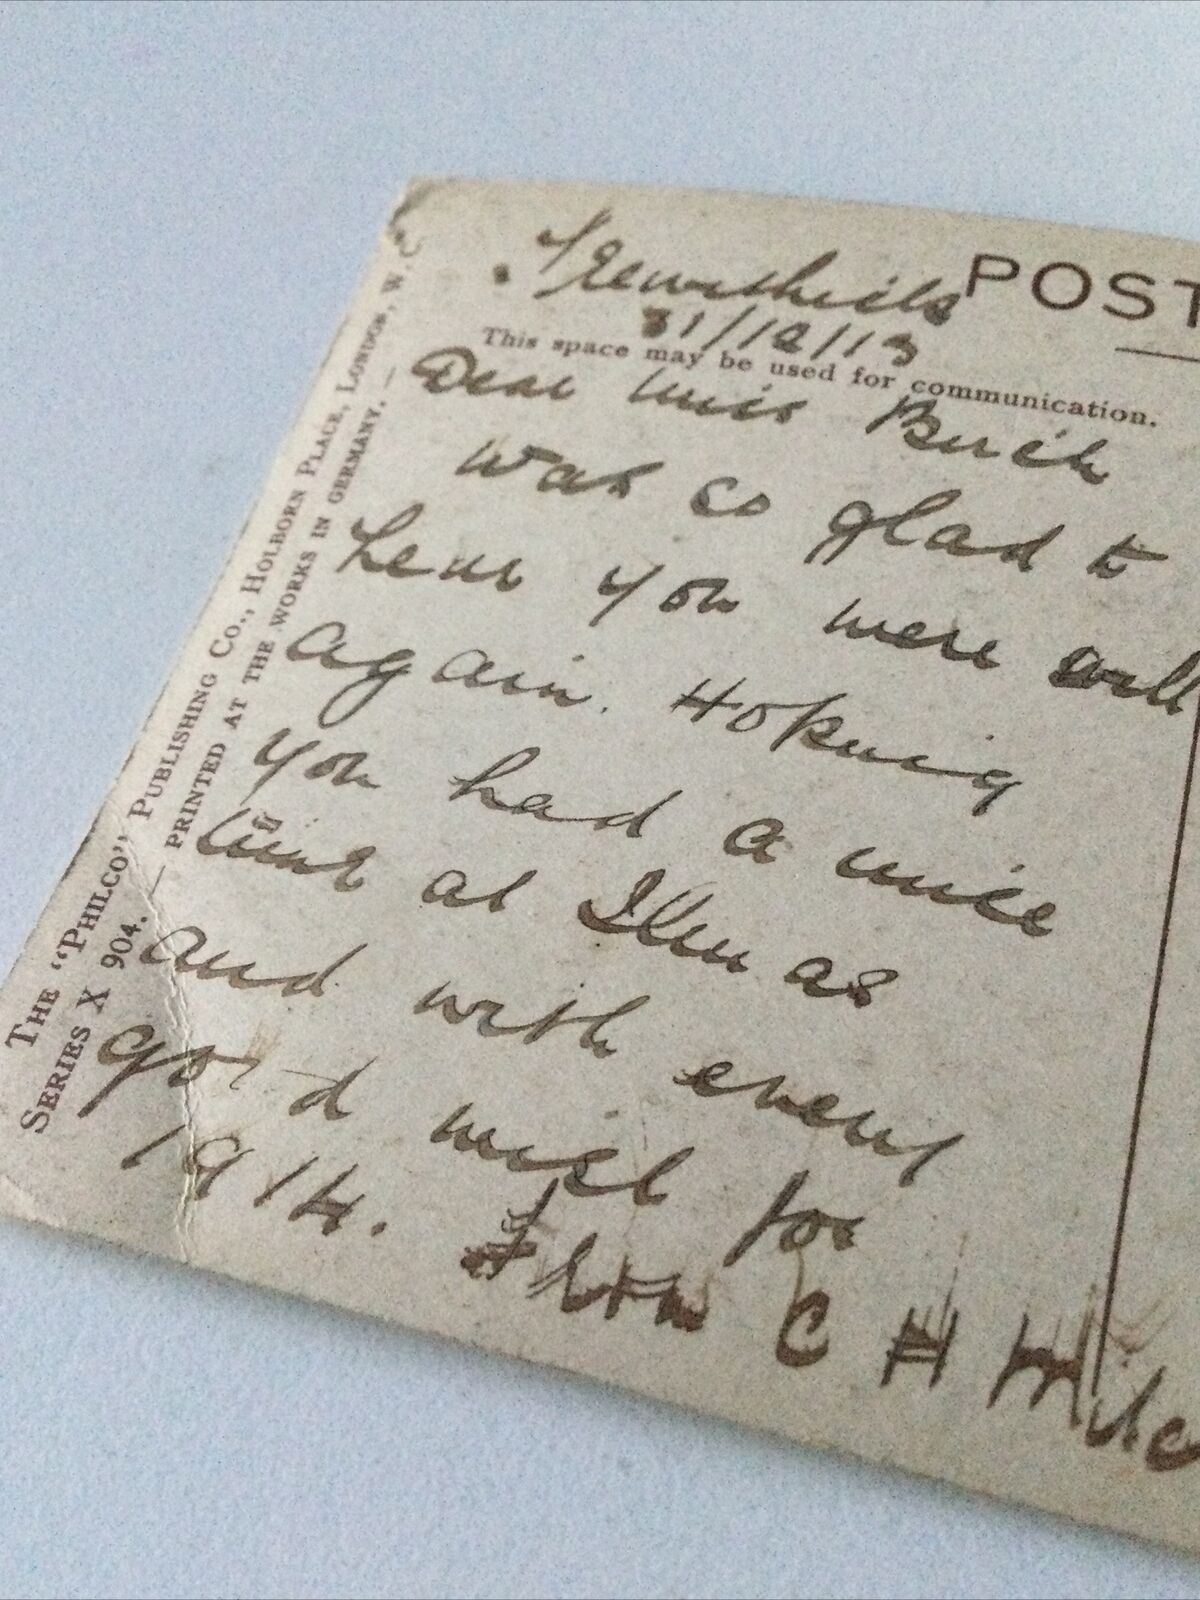 POST
31/12/13
This space may be used for communication.
Dear Miss Birch
was so glad to
hear you were well
again. Hoping
you had a nice
time at Xmas
and with every
good wish for
1914. From C H
THE "PHILCO" PUBLISHING CO., HOLBORN PLACE, LONDON, W.C.
SERIES X 904. — PRINTED AT THE WORKS IN GERMANY. —